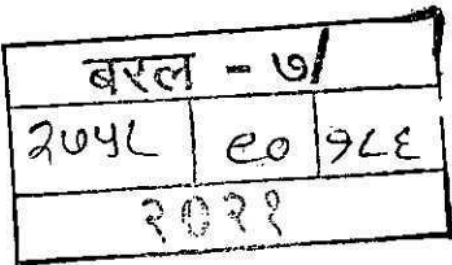 बरल - ७/
२७५८ ९० १८६
२०२१